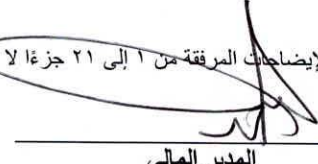 الإيضاحات المرفقة من ١ إلى ٢١ جزءًا لا
المدير المالي